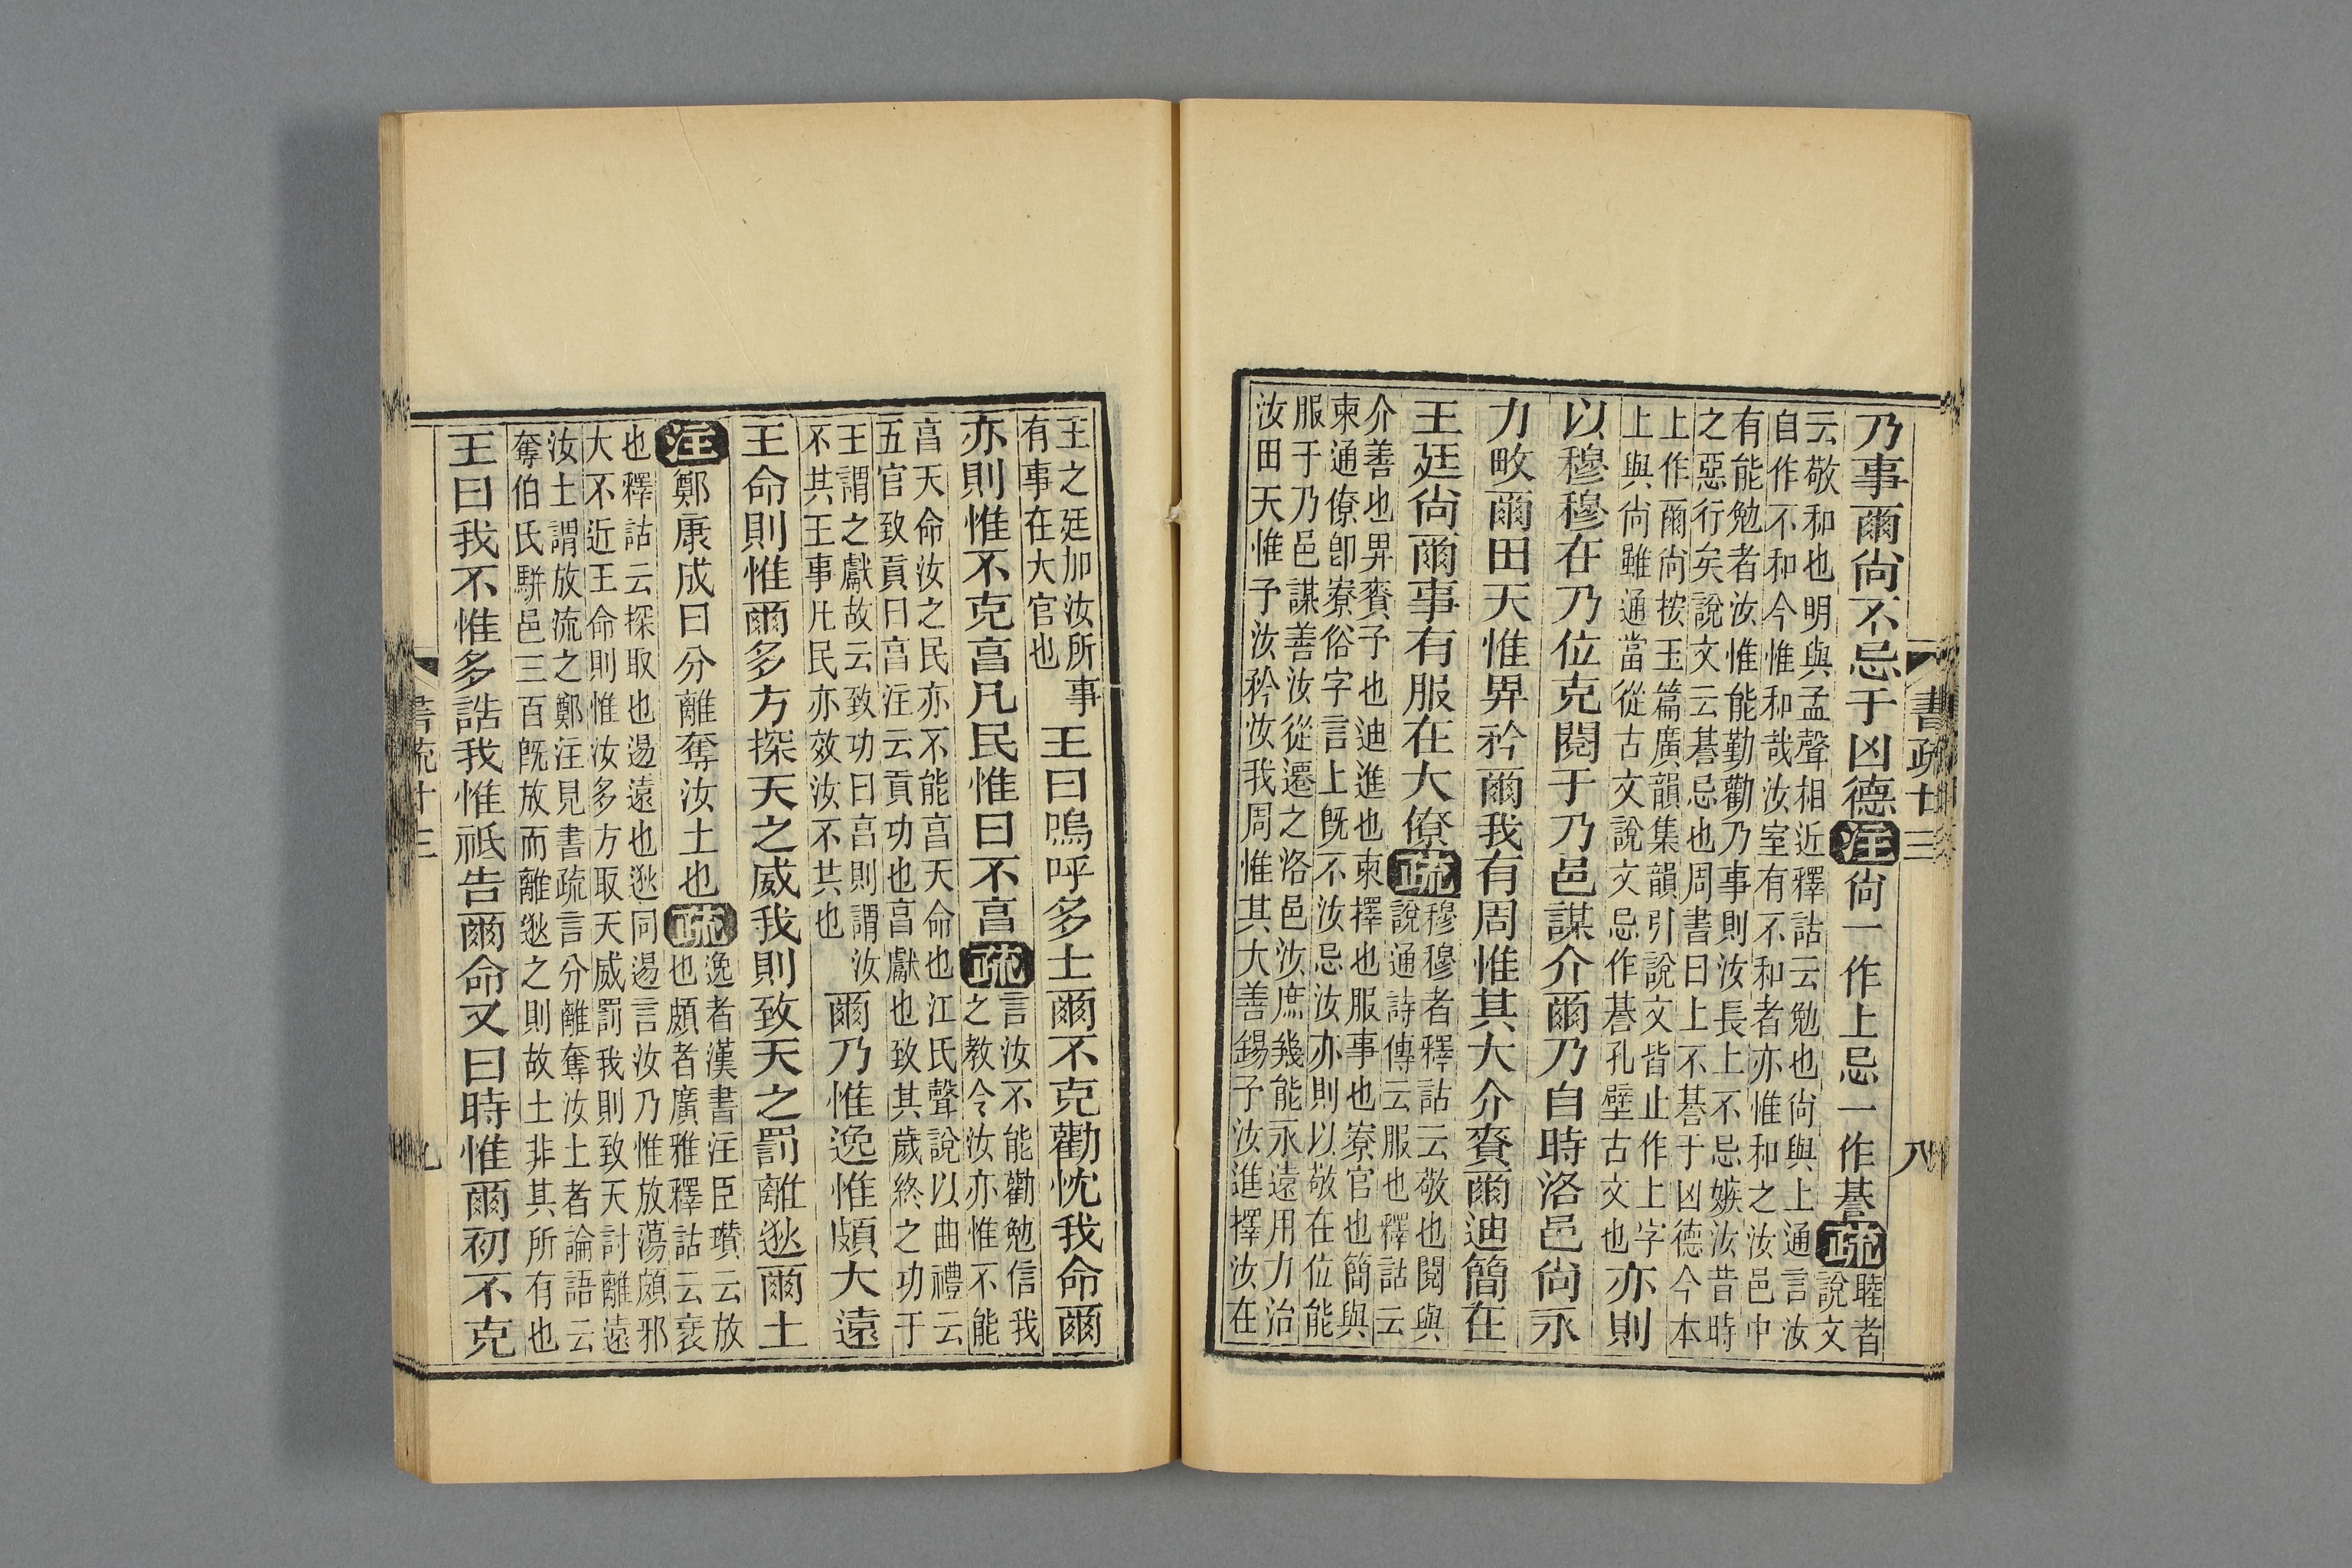 書疏廿三
八
乃事爾尙不忌于凶德注尙一作上忌一作諅疏睦者
說文
云敬和也明與孟聲相近釋詁云勉也尙與上通言汝
自作不和今惟和哉汝室有不和者亦惟和之汝邑中
有能勉者汝惟能勤勸乃事則汝長上不忌嫉汝昔時
之惡行矣說文云諅忌也周書曰上不諅于凶德今本
上作爾尙按玉篇廣韻集韻引說文皆止作上字
上與尙雖通當從古文說文忌作諅孔壁古文也
亦則
以穆穆在乃位克閱于乃邑謀介爾乃自時洛邑尙永
力畋爾田天惟畀矜爾我有周惟其大介賚爾迪簡在
王廷尙爾事有服在大僚疏穆穆者釋詁云敬也閱與
說通詩傳云服也釋詁云
介善也畀賚予也迪進也柬擇也服事也寮官也簡與
柬通僚卽寮俗字言上旣不汝忌汝亦則以敬在位能
服于乃邑謀善汝從遷之洛邑汝庶幾能永遠用力治
汝田天惟予汝矜汝我周惟其大善錫予汝進擇汝在
王之廷加汝所事
有事在大官也
王曰嗚呼多士爾不克勸忱我命爾
亦則惟不克亯凡民惟曰不亯疏言汝不能勸勉信我
之教令汝亦惟不能
亯天命汝之民亦不能亯天命也江氏聲說以曲禮云
五官致貢曰亯注云貢功也亯獻也致其歲終之功于
王謂之獻故云致功曰亯則謂汝
不其王事凡民亦效汝不共也
爾乃惟逸惟頗大遠
王命則惟爾多方探天之威我則致天之罰離逖爾土
注鄭康成曰分離奪汝土也疏逸者漢書注臣瓚云放
也頗者廣雅釋詁云衺
也釋詁云探取也逷遠也逖同逷言汝乃惟放蕩頗邪
大不近王命則惟汝多方取天威罰我則致天討離遠
汝土謂放流之鄭注見書疏言分離奪汝土者論語云
奪伯氏駢邑三百旣放而離逖之則故土非其所有也
王曰我不惟多誥我惟祗告爾命又曰時惟爾初不克
書疏廿三
九